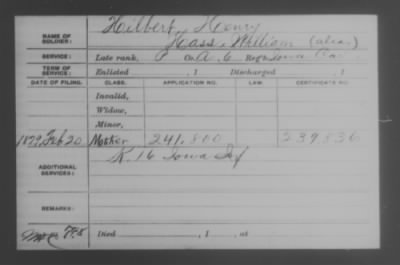 Hilbert, Henry
NAME OF SOLDIER: Hass, William (alias)
SERVICE: Late rank, P Co. A, 6 Reg't Iowa Cav
TERM OF SERVICE: Enlisted , 1 Discharged , 1
DATE OF FILING. CLASS. APPLICATION NO. LAW. CERTIFICATE NO.
Invalid,
Widow,
Minor,
1879, Feb 20 Mother 241,800 239,836
K. 16 Iowa Inf
ADDITIONAL SERVICES:
REMARKS:
Died , 1 , at